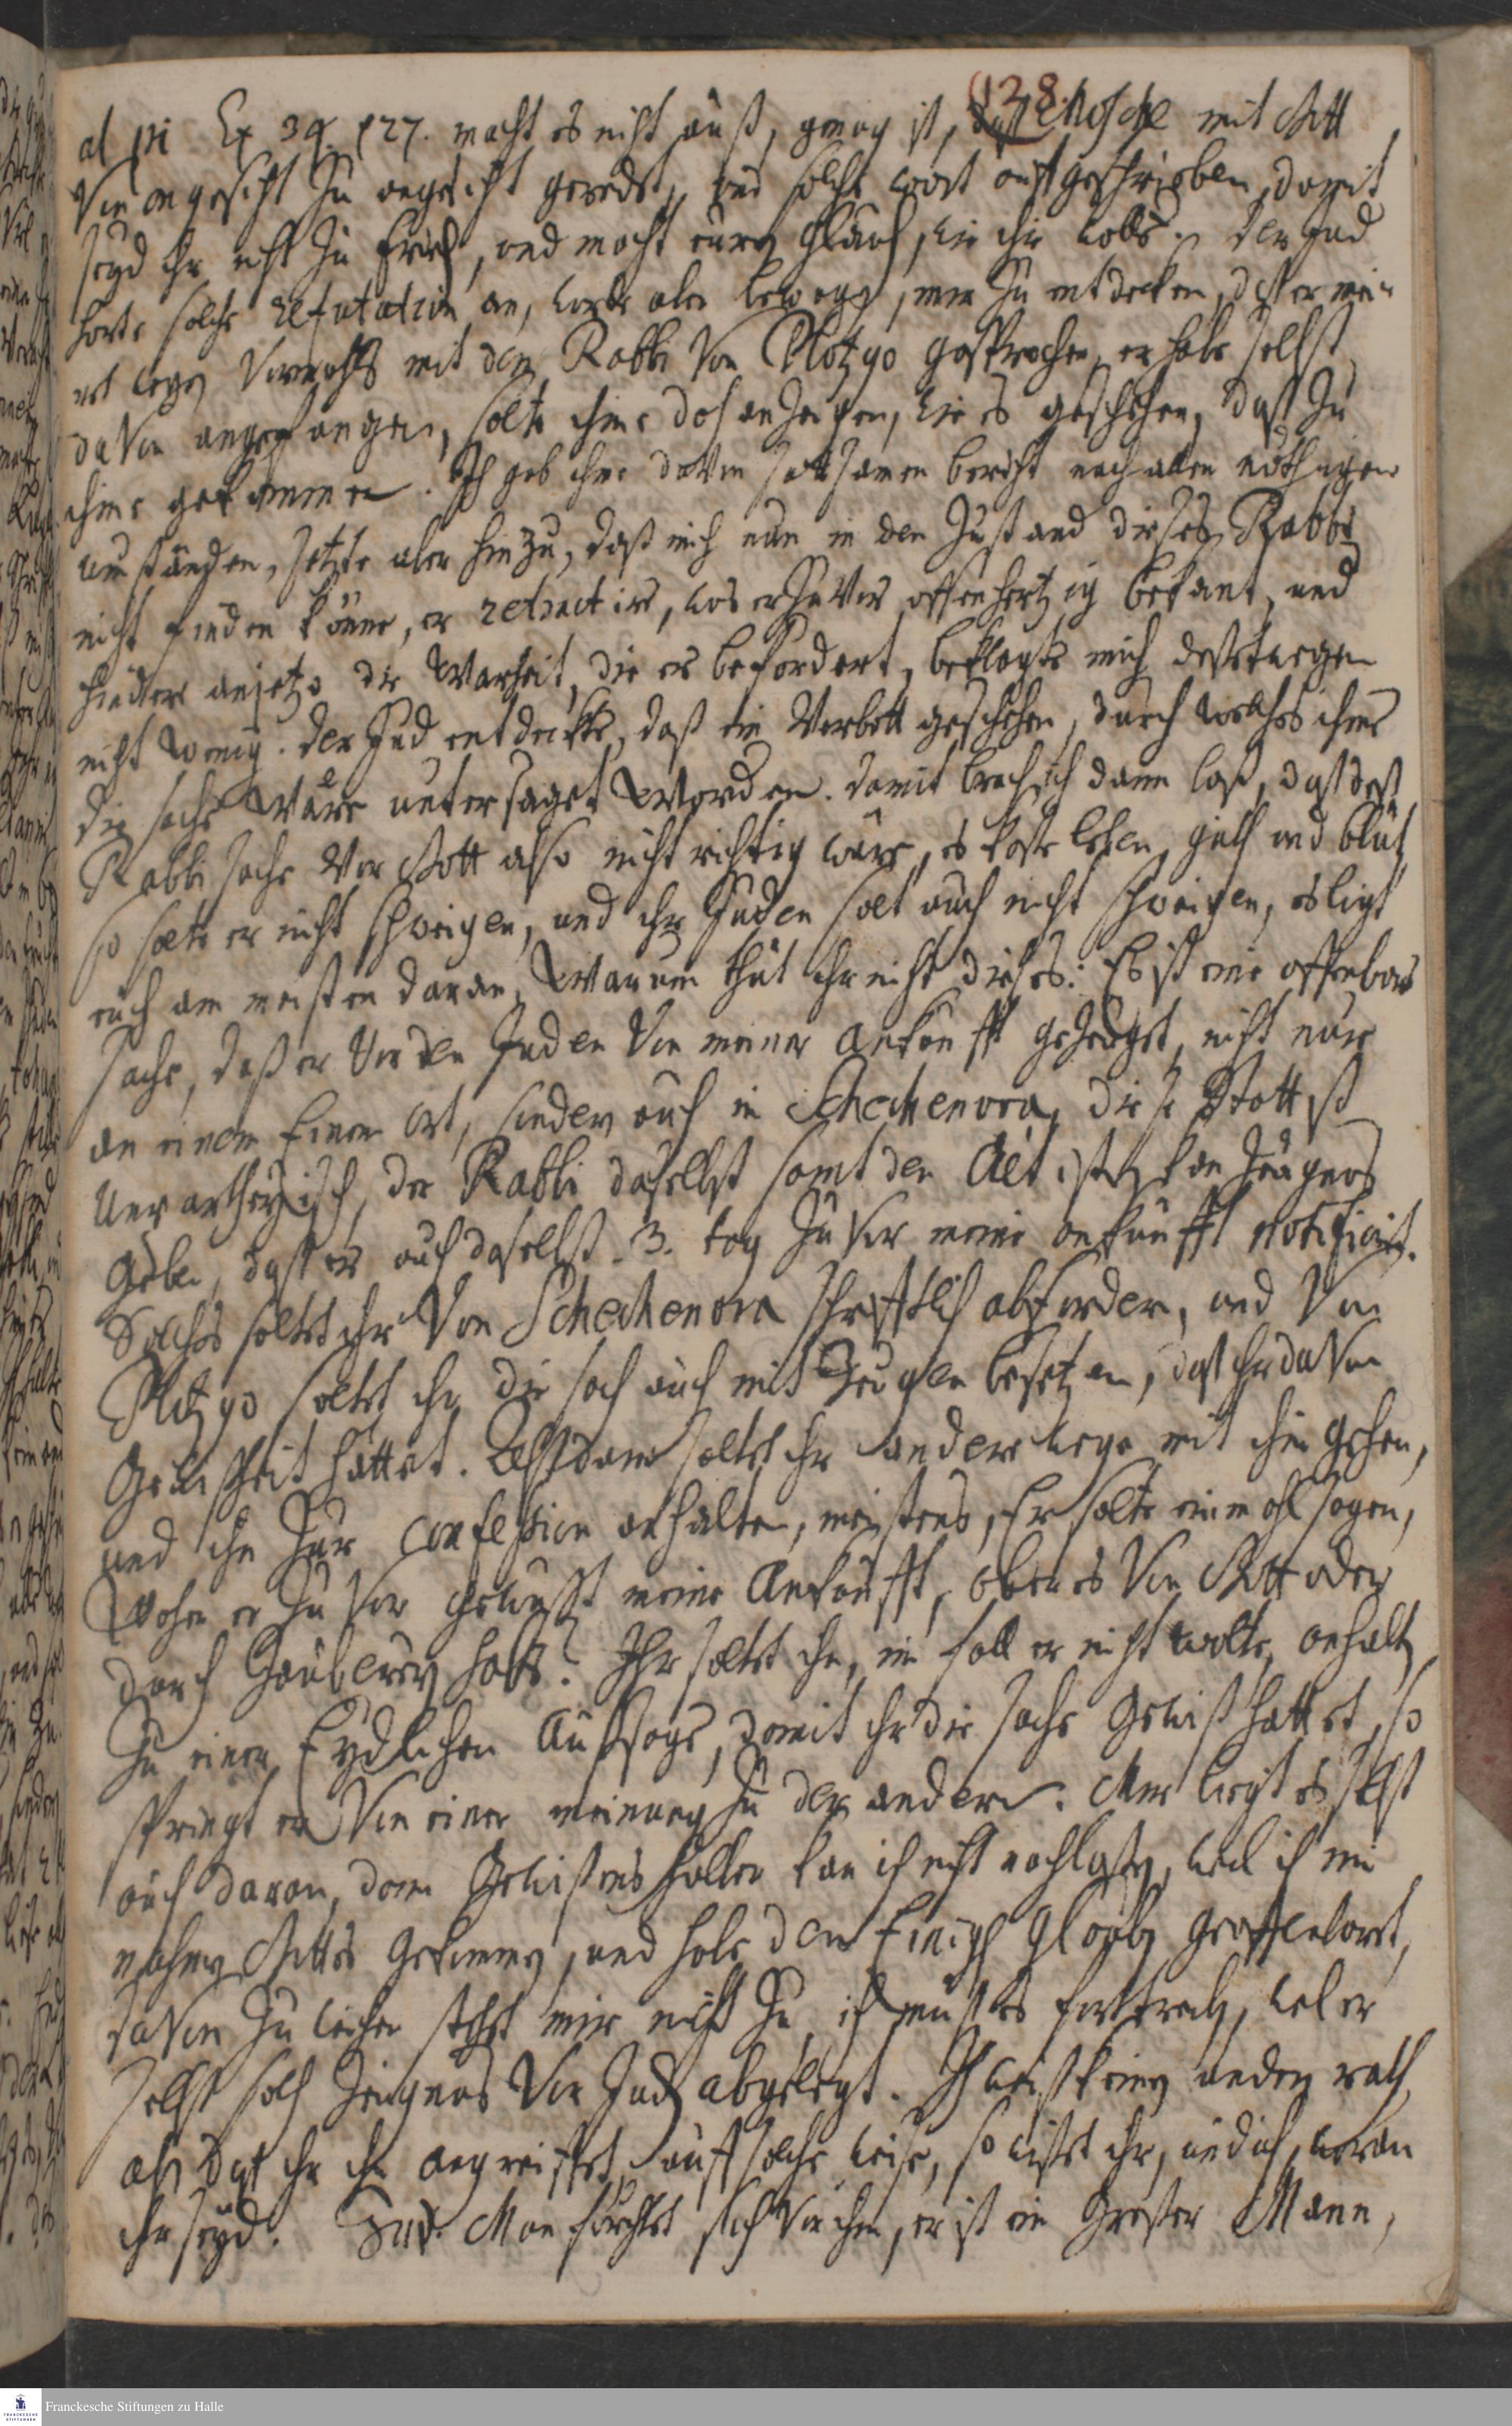 138.
al pi Ex 34. v 27. macht es nicht auß, genug ist, daß Mosche mit Gott
Von angesicht zu angesicht geredet, und solche wort auffgeschrieben, damit
seyd ihr nicht zu frieden, und macht euren Glauben, wie ihr wolt. Der Jud
horte solche refutation an, wurde aber bewogen, mir zu entdecken, daß er mei-
net wegen vormahls mit dem Rabbi von Plotzgo gesprochen, er habe selbst
davon angefangen, solte ihme doch anzeigen, wie es geschehen, daß zu
ihme gekommen. Ich gab ihme davon sattsamen bericht nach allen nöthigen
umständen, setzte aber hinzu, daß mich nun in den Zustand dieses Rabbi
nicht finden könne, er retractire, was er zuvor offenhertzig bekant, und
hindere anjetzo die Warheit, die er befordert, beklagte mich deßwegen
nicht wenig. Der Jud entdeckte, daß ein Verbott geschehen, durch welches ihme
die sache wäre untersaget worden. Damit brach ich dann loß, daß deß
Rabbi sache vor Gott also nicht richtig wäre, es koste leben, guth und blut,
so solte er nicht schweigen, und ihr Juden solt auch nicht schweigen, es ligt
euch am meisten daran, Warum thut ihr nicht dieses: Es ist eine offenbare
sache, daß er vor den Juden von meiner ankunfft gezeuget, nicht nur
an einem Einen Ort, sondern auch in Schechenova, diese Statt ist
unpartheyisch, der Rabbi daselbst samt den Aeltisten kan Zeugnus
geben, daß er auch daselbst 3. tag zuvor meine ankunfft notificirt.
Solches soltet ihr von Schechenova schrifftlich abfordern, und von
Plotzgo soltet ihr die sach auch mit Zeugen besetzen, daß ihr davon
Gewißheit hättet. Alsdann soltet ihr andere wege mit ihm gehen,
und ihn zur confession anhalten, meistens, Er solte einmahl sagen,
Woher er zuvor gewußt meine Ankunfft, ob er es von Gott oder
durch Zauberey habe? Ihr soltet ihn, im fall er nicht wolte, anhalten
zu einer Eydlichen Aussage, damit ihr die sache gewiß hättet, so
springt er von einer meinung zu der andern. Mir ligt es selbst
auch daran, dann Gewissens halber kan ich nicht nachlassen, weil ich im
nahmen Gottes gekommen, und habe den Einigen Glauben geoffenbaret,
davon zu weichen stehet mir nicht zu, ich muß es forttreiben, weil er
selbst solch Zeugnus vor Juden abgelegt. Ich weiß keinen andern rath,
als daß ihr ihn angreiffet auff solche weise, so wisset ihr, und ich, woran
ihr seyd. Jud. Man förchtet sich vor ihm, er ist ein grosser Mann,
Franckesche Stiftungen zu Halle